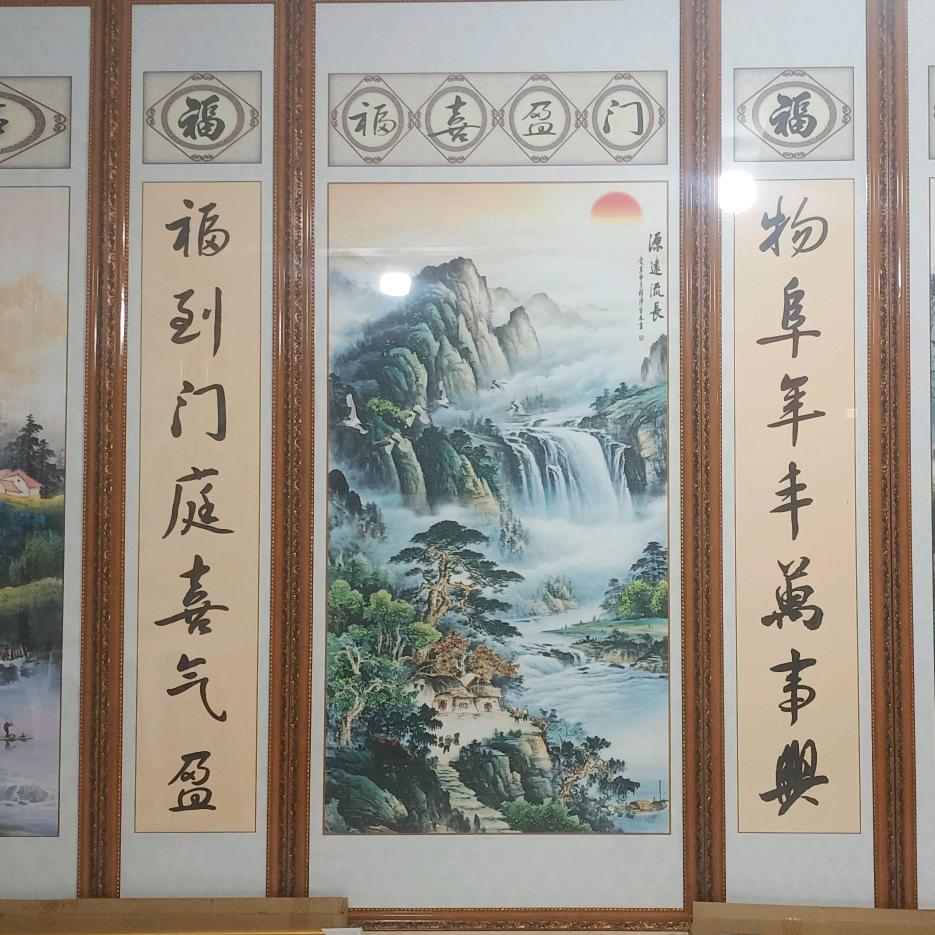 福
福喜盈门
福
物阜年丰萬事興
源遠流長
福到门庭喜气盈